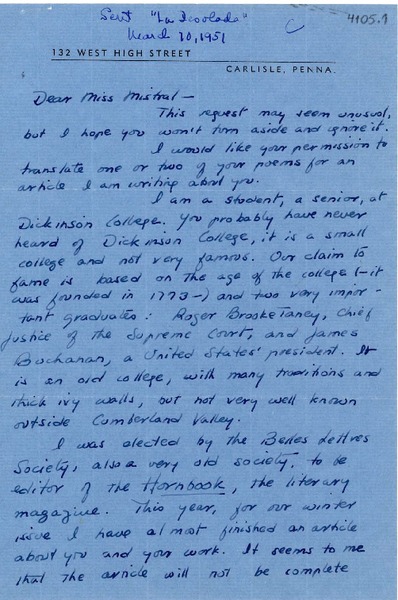 Sent "La Desolada"
March 30, 1951
4105.1
132 WEST HIGH STREET
CARLISLE, PENNA.
Dear Miss Mistral—
This request may seem unusual,
but I hope you won't turn aside and ignore it.
I would like your permission to
translate one or two of your poems for an
article I am writing about you.
I am a student, a senior, at
Dickinson College. You probably have never
heard of Dickinson College, it is a small
college and not very famous. Our claim to
fame is based on the age of the college (—it
was founded in 1773—) and two very impor-
tant graduates: Roger Brooke Taney, Chief
Justice of the Supreme Court, and James
Buchanan, a United States' president. It
is an old college, with many traditions and
thick ivy walls, but not very well known
outside Cumberland Valley.
I was elected by the Belles Lettres
Society, also a very old society, to be
editor of the Hornbook, the literary
magazine. This year, for our winter
issue I have almost finished an article
about you and your work. It seems to me
that the article will not be complete